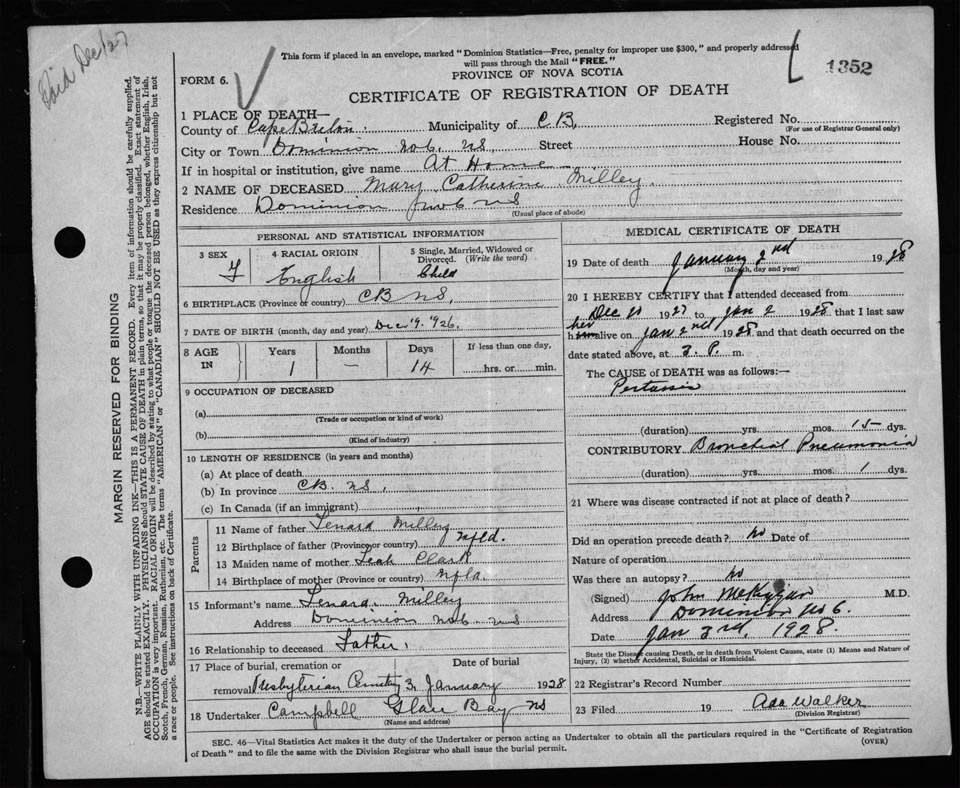 Paid Dec/27
This form if placed in an envelope, marked "Dominion Statistics—Free, penalty for improper use $300," and properly addressed
will pass through the Mail "FREE."
1352
FORM 6.
PROVINCE OF NOVA SCOTIA
CERTIFICATE OF REGISTRATION OF DEATH
1 PLACE OF DEATH—
County of Cape Breton. Municipality of C B, Registered No.
(For use of Registrar General only)
City or Town Dominion No 6. NS, Street House No.
If in hospital or institution, give name At Home
2 NAME OF DECEASED Mary Catherine Milley.
Residence Dominion No 6 NS
(Usual place of abode)
MARGIN RESERVED FOR BINDING
N.B.—WRITE PLAINLY WITH UNFADING INK—THIS IS A PERMANENT RECORD. Every item of information should be carefully supplied.
AGE should be stated EXACTLY. PHYSICIANS should STATE CAUSE OF DEATH in plain terms, so that it may be properly classified. Exact statement of
OCCUPATION is very important. RACIAL ORIGIN will be described by stating to what people or tongue the deceased person belonged, whether English, Irish,
Scotch, French, German, Russian, Ruthenian, etc. The terms "AMERICAN" or "CANADIAN" SHOULD NOT BE USED as they express citizenship but not
a race or people. See instructions on back of Certificate.
PERSONAL AND STATISTICAL INFORMATION
3 SEX F
4 RACIAL ORIGIN English
5 Single, Married, Widowed or
Divorced. (Write the word)
Child
6 BIRTHPLACE (Province or country) CB NS,
7 DATE OF BIRTH (month, day and year) Dec 19. 1926.
8 AGE IN
Years Months Days If less than one day,
1 — 14 hrs. or min.
9 OCCUPATION OF DECEASED
(a)
(Trade or occupation or kind of work)
(b)
(Kind of industry)
10 LENGTH OF RESIDENCE (in years and months)
(a) At place of death
(b) In province CB. NS,
(c) In Canada (if an immigrant)
Parents
11 Name of father Lenard Milley
12 Birthplace of father (Province or country) Nfld.
13 Maiden name of mother Leah Clark
14 Birthplace of mother (Province or country) Nfld.
15 Informant's name Lenard. Milley
Address Dominion No 6. NS
16 Relationship to deceased Father,
17 Place of burial, cremation or Date of burial
removal Presbyterian Cemetry 3, January 1928
18 Undertaker Campbell Glace Bay NS
(Name and address)
MEDICAL CERTIFICATE OF DEATH
19 Date of death January 2nd 1928
(Month, day and year)
20 I HEREBY CERTIFY that I attended deceased from
Dec 1927 to Jan 2 1928 that I last saw
her
him alive on Jan 2nd 1928 and that death occurred on
date stated above, at 3. P. m.
The CAUSE of DEATH was as follows:—
Pertussis
(duration) yrs. mos. 15 dys.
CONTRIBUTORY Bronchial Pneumonia
(duration) yrs. mos. 1 dys.
21 Where was disease contracted if not at place of death?
Did an operation precede death? No Date of
Nature of operation
Was there an autopsy? No
(Signed) John M.D.
Address Dominion No 6.
Date Jan 3rd, 1928.
State the Disease causing Death, or in death from Violent Causes, state (1) Means and Nature of
Injury, (2) whether Accidental, Suicidal or Homicidal.
22 Registrar's Record Number
23 Filed 19 Ada Walker
(Division Registrar)
SEC. 46—Vital Statistics Act makes it the duty of the Undertaker or person acting as Undertaker to obtain all the particulars required in the "Certificate of Registration
of Death" and to file the same with the Division Registrar who shall issue the burial permit. (OVER)